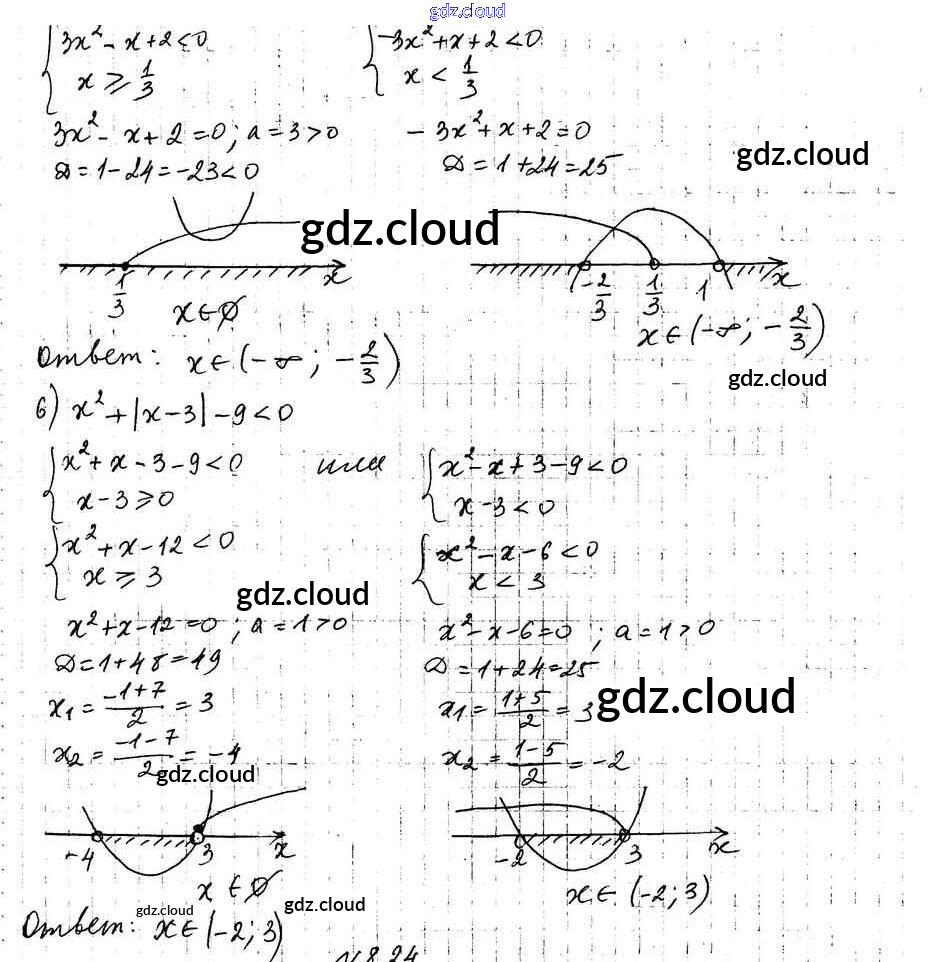 gdz.cloud
3x² - x + 2 < 0
x ≥ 1/3
-3x² + x + 2 < 0
x < 1/3
3x² - x + 2 = 0; a = 3 > 0
Д = 1 - 24 = -23 < 0
-3x² + x + 2 = 0
Д = 1 + 24 = 25
gdz.cloud
gdz.cloud
1/3 x
x ∈ ∅
-2/3 1/3 1 x
x ∈ (-∞; -2/3)
Ответ: x ∈ (-∞; -2/3)
gdz.cloud
б) x² + |x - 3| - 9 < 0
x² + x - 3 - 9 < 0 или x² - x + 3 - 9 < 0
x - 3 ≥ 0 x - 3 < 0
x² + x - 12 < 0 x² - x - 6 < 0
x ≥ 3 x < 3
gdz.cloud
x² + x - 12 = 0; a = 1 > 0
Д = 1 + 48 = 49
x₁ = (-1+7)/2 = 3
x₂ = (-1-7)/2 = -4
gdz.cloud
x² - x - 6 = 0; a = 1 > 0
Д = 1 + 24 = 25
x₁ = (1+5)/2 = 3
gdz.cloud
x₂ = (1-5)/2 = -2
-4 3 x
x ∈ ∅
-2 3 x
x ∈ (-2; 3)
gdz.cloud
gdz.cloud
Ответ: x ∈ (-2; 3)